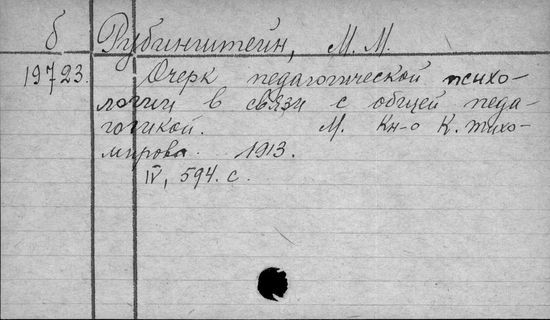 б Рубинштейн, М. М.
19723. Очерк педагогической психо-
логии в связи с общей педа-
гогикой. М. Кн-о К. Тихо-
мирова. 1913.
IV, 594. с.